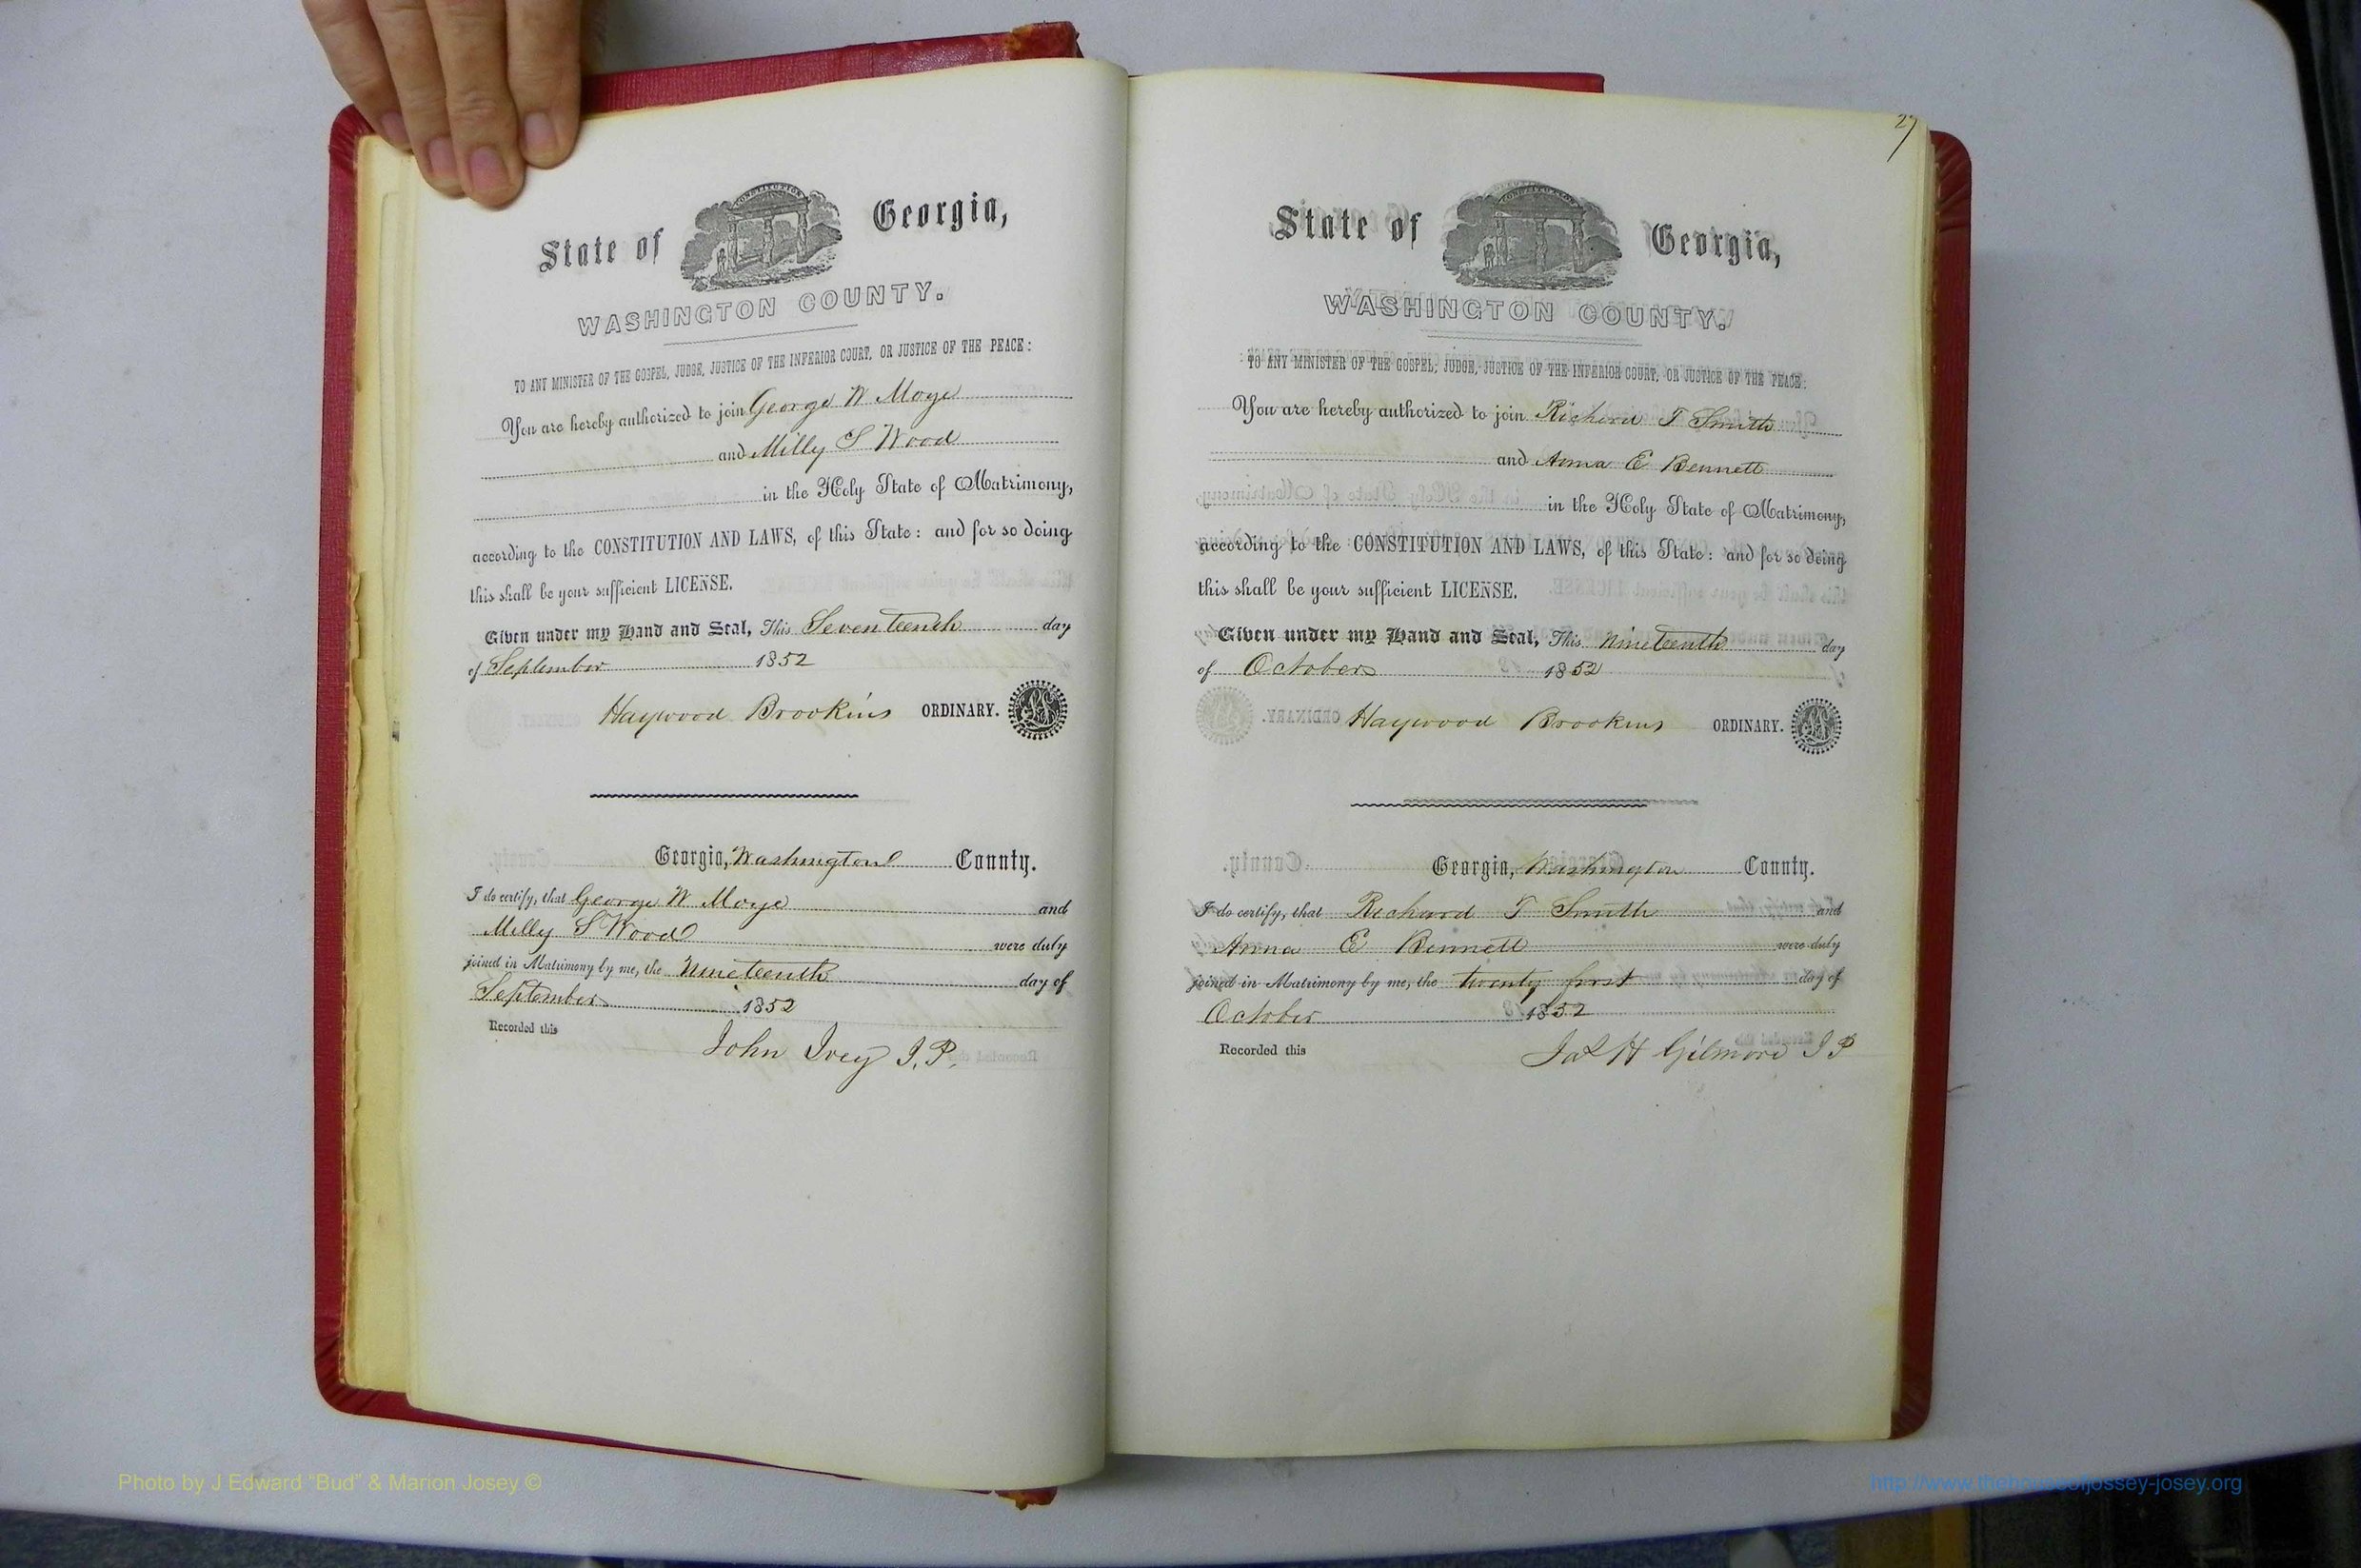 State of Georgia,
CONSTITUTION
WASHINGTON COUNTY.
TO ANY MINISTER OF THE GOSPEL, JUDGE, JUSTICE OF THE INFERIOR COURT, OR JUSTICE OF THE PEACE:
You are hereby authorized to join George W Moye
and Milly S Wood
in the Holy State of Matrimony,
according to the CONSTITUTION AND LAWS, of this State: and for so doing
this shall be your sufficient LICENSE.
Given under my Hand and Seal, This Seventeenth day
of September 1852
Haywood Brookins ORDINARY.
Georgia, Washington County.
I do certify, that George W Moye and
Milly S Wood were duly
joined in Matrimony by me, the Nineteenth day of
September 1852
Recorded this
John Ivey J.P.
27
State of Georgia,
CONSTITUTION
WASHINGTON COUNTY.
TO ANY MINISTER OF THE GOSPEL, JUDGE, JUSTICE OF THE INFERIOR COURT, OR JUSTICE OF THE PEACE:
You are hereby authorized to join Richard T Smith
and Anna E Bennett
in the Holy State of Matrimony,
according to the CONSTITUTION AND LAWS, of this State: and for so doing
this shall be your sufficient LICENSE.
Given under my Hand and Seal, This Nineteenth day
of October 1852
Haywood Brookins ORDINARY.
Georgia, Washington County.
I do certify, that Richard T Smith and
Anna E Bennett were duly
joined in Matrimony by me, the twenty first day of
October 1852
Recorded this
H Gilmore J P
Photo by J Edward "Bud" & Marion Josey ©
http://www.thehouseofjossey-josey.org